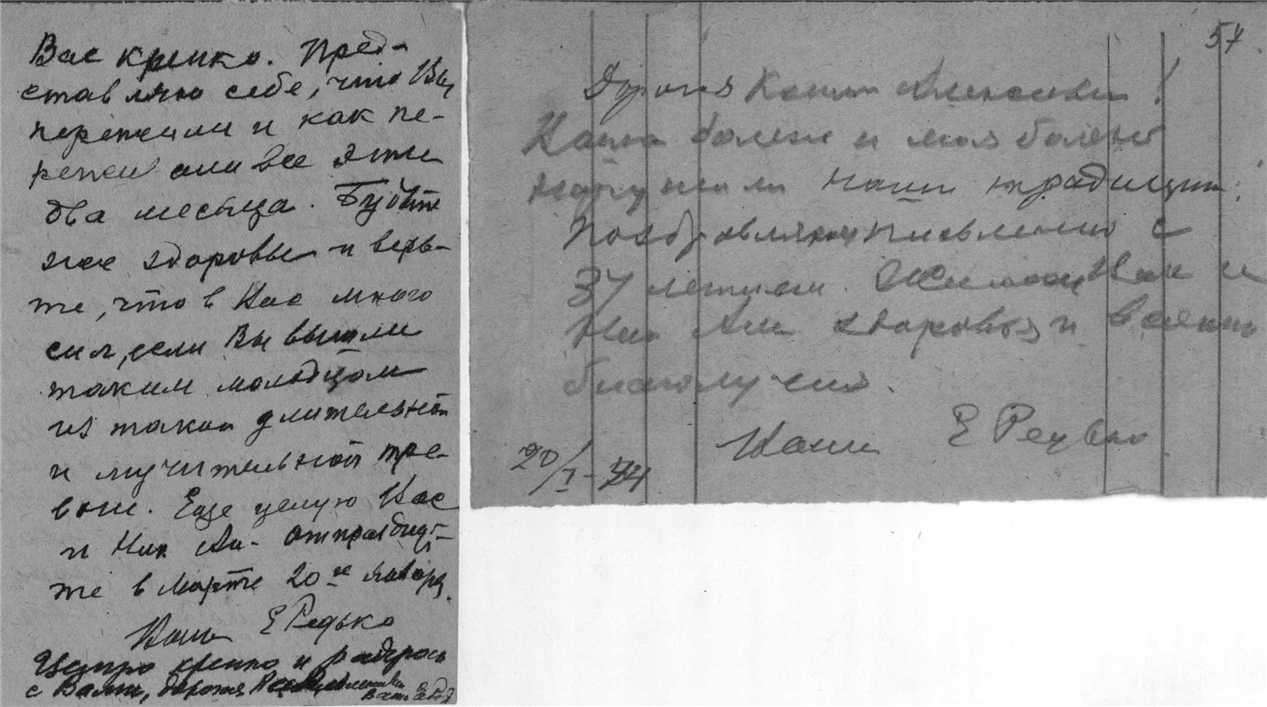 Вас крепко. Пред-
ставляю себе, что Вы
пережили и как пе-
реживали все эти
два месяца. Будьте
же здоровы и верь-
те, что в Вас много
сил, если Вы вышли
таким молодцом
из такой длительной
и мучительной тре-
воги. Еще целую Вас
и Ник Ал. Отпразднуй-
те в марте 20ое января.
Ваша Е Редько
Целую крепко и радуюсь
с Вами, дорогая
57
Дорогая Ксения Алексеевна!
Ваша болезнь и моя болезнь
нарушили наши традиции:
Поздравляю письменно с
37 летием. Желаю Вам и
Ник Ал здоровья и всякого
благополучия.
Ваша Е Редько
20/I-44